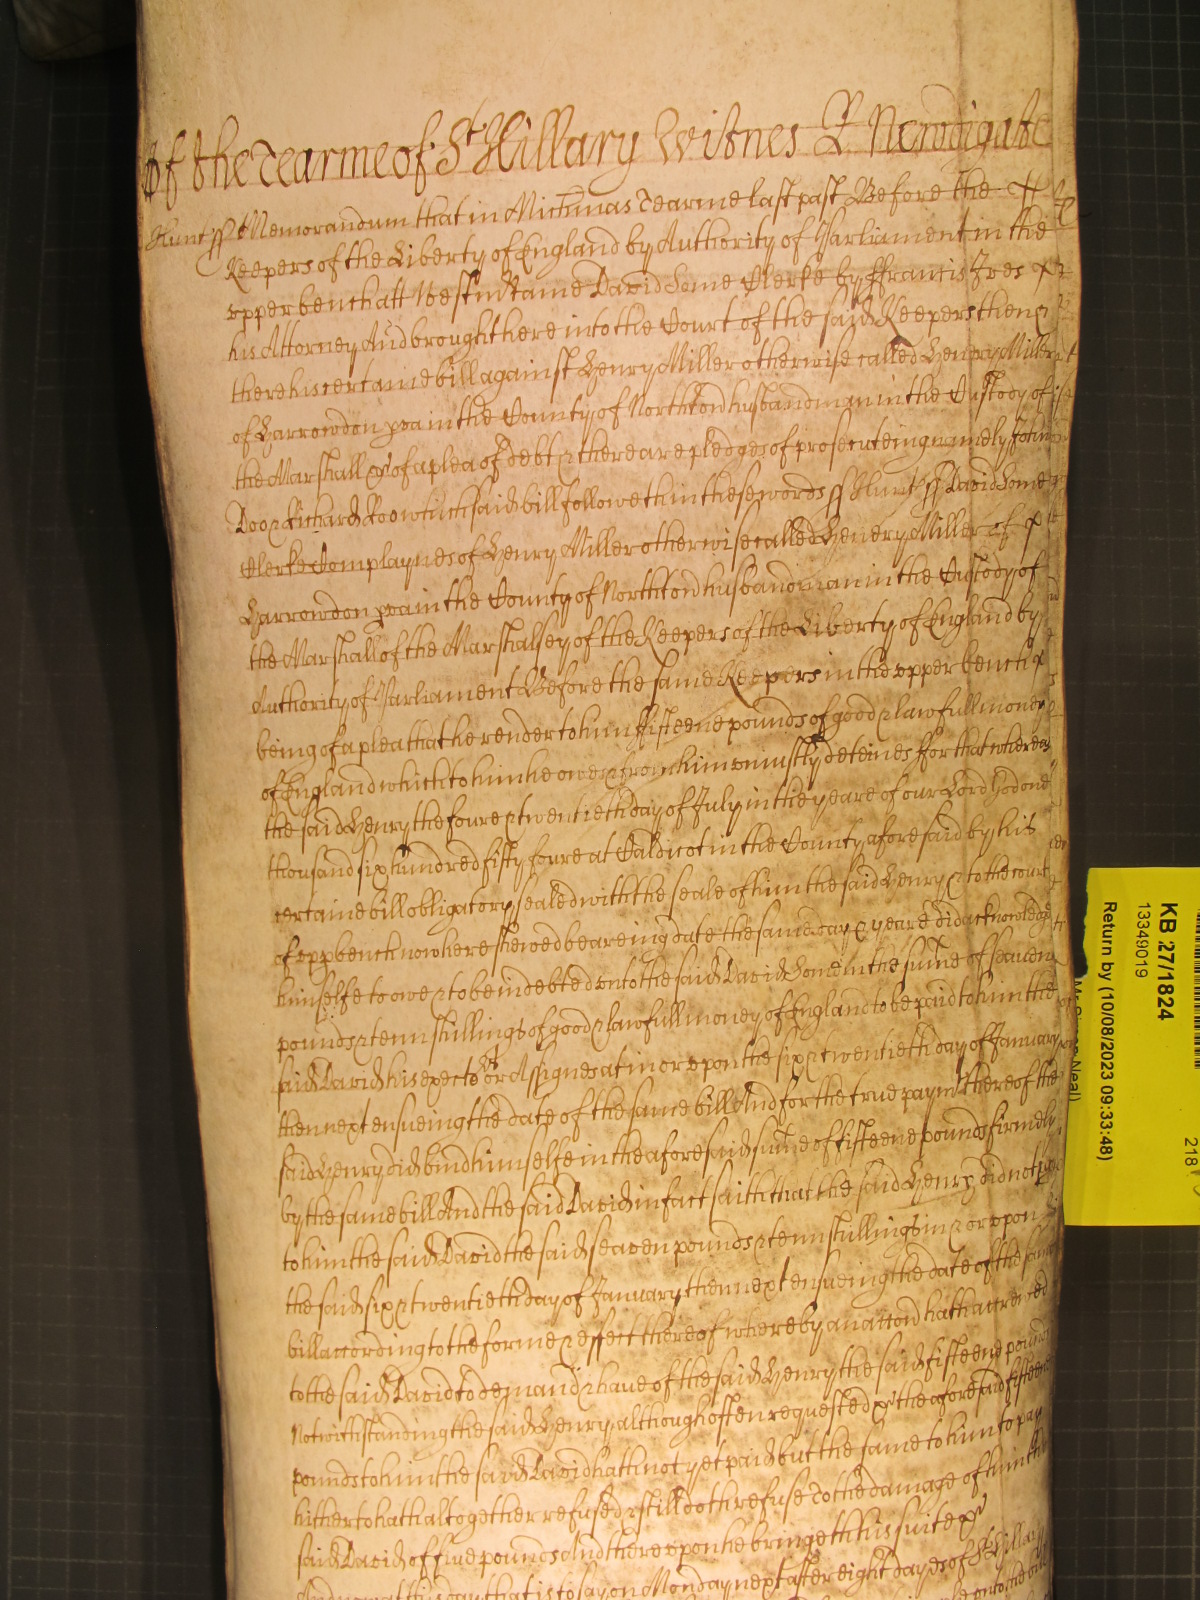 Of the Tearme of St Hillary Witnes R Newdigate
Hunt ss Memorandum that in Michmas Tearme last past Before the
Keepers of the Liberty of England by Authority of Parliament in the
upper bench att Westm came David Some Clerke by ffrancis Ives
his Attorney And brought here into the Court of the said Keepers then &
there his certaine bill against Henry Miller otherwise called Henry Miller
of Harrowdon pva in the County of Northton husbandman in the Custody of
the Marshall &c of a plea of debt & there are pledges of prosecuteing namely John
Doo & Richard Roo which said bill followeth in these words ss Hunt ss David Some
Clerke Complaynes of Henry Miller otherwise called Henery Miller of
Harrowdon pva in the County of Northton husbandman in the Custody of
the Marshall of the Marshallsey of the Keepers of the Liberty of England by
Authority of Parliament Before the same Keepers in the upper bench
being of a plea that he render to him fifteene pounds of good & lawfull money
of England which to him he owes & from him uniustly deteines ffor that whereas
the said Henry the foure & twentieth day of July in the yeare of our Lord God one
thousand six hundred fifty foure at Caldicot in the County aforesaid by his
certaine bill obligatory sealed with the seale of him the said Henry & to the court
of upp bench now here shewed beareing date the same day & yeare did acknowledge
himselfe to owe & to be indebted unto the said David Some in the sume of seaven
pounds & tenn shillings of good & lawfull money of England to be paid to him the
said David his execto or Assignes at in or upon the six & twentieth day of January
then next ensueing the date of the same bill And for the true paymt thereof the
said Henry did bind himselfe in the aforesaid sume of fifteene pounds firmely
by the same bill And the said David in fact saith that the said Henry did not pay
to him the said David the said seaven pounds & tenn shillings in & or upon
the said six & twentieth day of January then next ensueing the date of the same
bill according to the forme & effect thereof whereby an accon hath accrewed
to the said David to demand & have of the said Henry the said fifteene pounds
Notwithstanding the said Henry although often requested &c the aforesaid fifteene
pounds to him the said David hath not yet paid but the same to him to pay
hitherto hath altogether refused & still doth refuse To the damage of him the
said David of five pounds And thereupon he bringeth his suite &c
And now at this day that is to say on Monday next after eight dayes of St Hillary
KB 27/1824
13349019
Return by (10/08/2023 09:33:48)
218